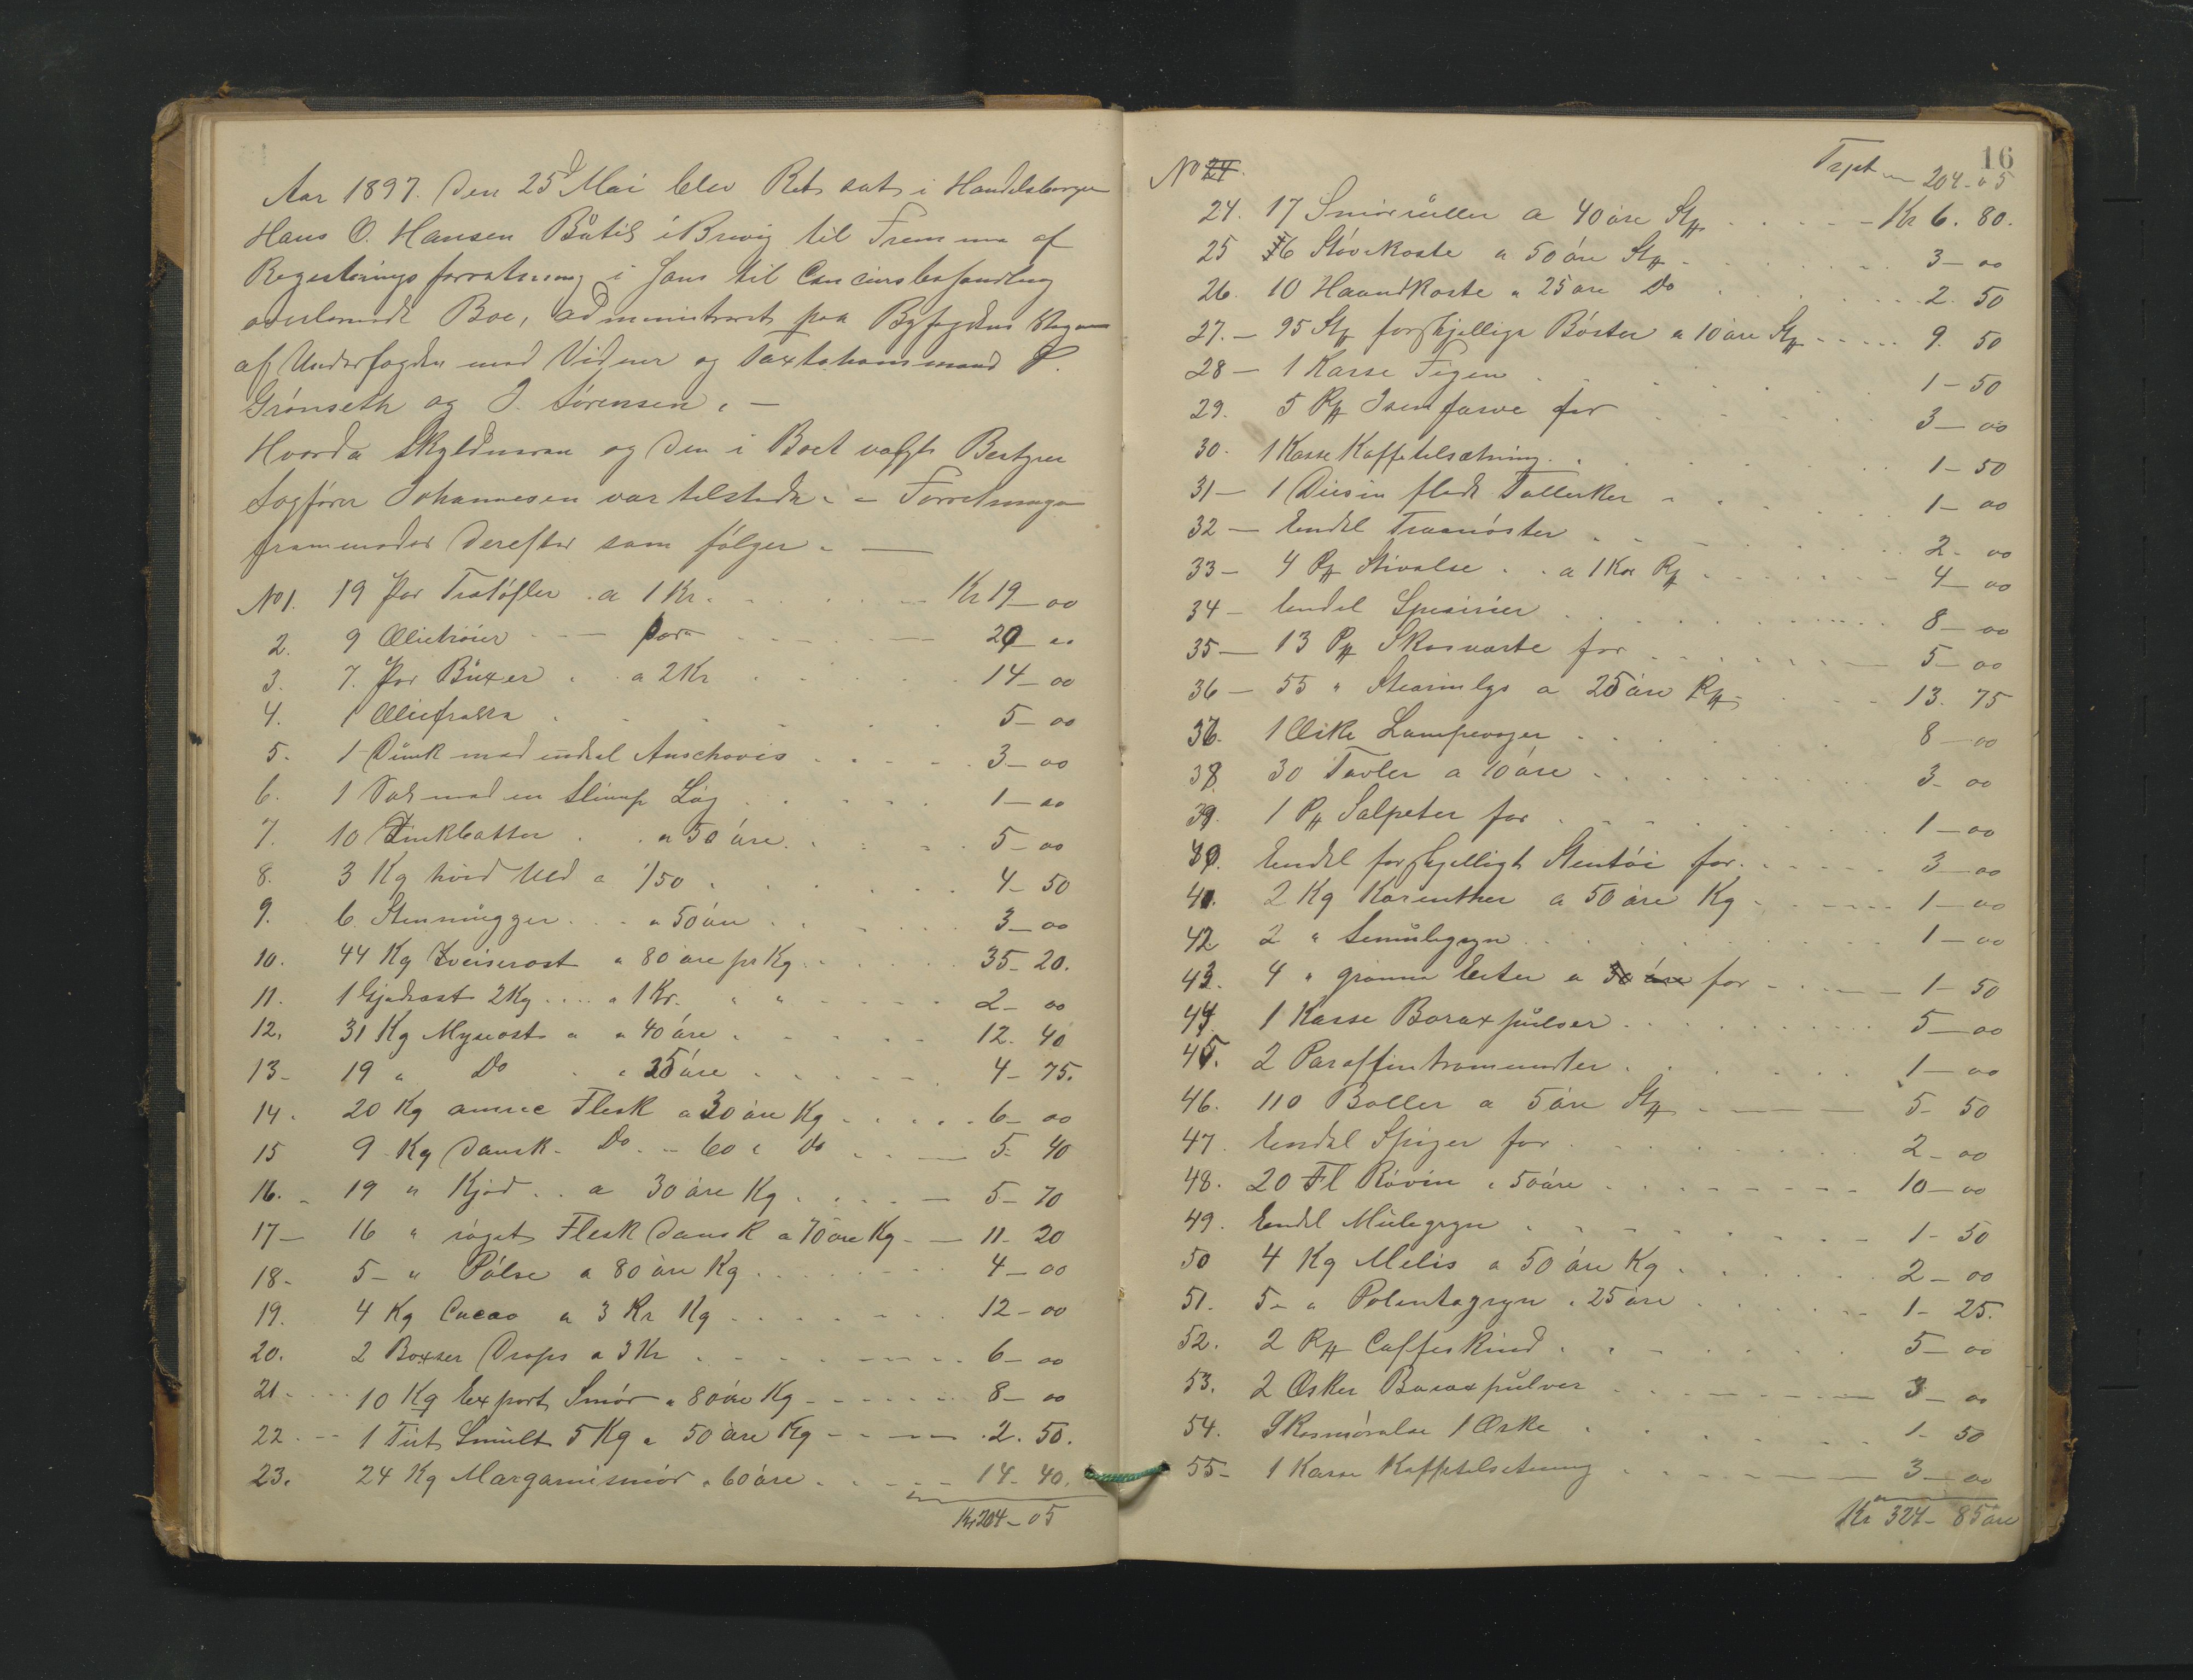 Aar 1897. Den 25d Mai blev Ret sat i Handelsborger
Hans O. Hansen Butik i Brevig til Fremme af
Registeringsforretning i hans til Concursbehandling
overleverede Boe, administreret paa Byfogdens Vegne
af Underfogden med Vidner og Taxtationsmænd P.
Grönseth og J. Sörensen. —
Hvorda Skyldneren og den i Boet valgte Bestyrer
Sagförer Johannesen var tilstede. – Forretningen
fremmedes derefter som fölger. —
No 1. 19 Par Tratöfler a 1 Kr. Kr 19 – 00
2. 9 Olietröier – par 20 – 00
3. 7. Par Buxer a 2 Kr 14 – 00
4. 1 Oliefrakke 5 – 00
5. 1 Dunk med endel Anschovis 3 – 00
6. 1 Sæk med en Slump Løg 1 – 00
7. 10 Zinkbøtter a 50 öre. 5 – 00
8. 3 Kg hvid Uld a 1/50 4 – 50
9. 6 Stenmugger a 50 öre 3 – 00
10. 44 Kg Sveiserost a 80 öre pr Kg 35 – 20.
11. 1 Gjedeost 2 Kg a 1 Kr. 2 – 00
12. 31 Kg Myseost a 40 öre 12. 40
13 – 19 " Do " 25 öre 4 – 75.
14. 20 Kg amric Flesk a 30 öre Kg 6 – 00
15 9 Kg Dansk Do 60 " do 5 – 40
16. – 19 " Kjöd a 30 öre Kg 5 – 70
17 – 16 " röget Flesk Dansk a 70 öre Kg 11 – 20
18 – 5 – " Pölse a 80 öre Kg 4 – 00
19. 4 Kg Cacao a 3 Kr Kg 12 – 00
20. 2 Boxser Drops a 3 Kr 6 – 00
21 – 10 Kg Export Smör a 80 öre Kg 8 – 00
22. – 1 Tut Smult 5 Kg a 50 öre Kg 2. 50.
23. 24 Kg Margarinsmör a 60 öre 14 – 40.
Kr 204 – 05
16
No 24.
Trspt 204 – 05
24. 17 Smörruller a 40 öre Stk Kr 6. 80.
25 6 Stövekoste a 50 öre Stk 3 – 00
26. 10 Haandkoste a 25 öre Do 2. 50
27. – 95 Stk forskjellige Börster a 10 öre Stk 9. 50
28 – 1 Kasse Figen 1 – 50
29. 5 Pk Isenfarve for 3 – 00
30. 1 Kasse Kaffetilsætning. 1 – 50
31 – 1 Dusin flade Tallerker 1 – 00
32 – Endel Traanöster 2 – 00
33 – 4 Pk Stivelse a 1 Kr Pk 4 – 00
34 – Endel Speserier 8 – 00
35 – 13 Pk Skosværte for 5 – 00
36 – 55 " Stearinlys a 25 öre Pk 13. 75
37. 1 Æske Lampevæger 8 – 00
38 30 Tavler a 10 öre 3 – 00
39. 1 Pk Salpeter for 1 – 00
40. Endel forskjelligt Stentöi for. 3 – 00
41. 2 Kg Korenther a 50 öre Kg 1 – 00
42 2 " Semulegryn 1 – 00
43. 4 " grönne Erter a 30 öre for 1 – 50
44. 1 Kasse Boraxpulver 5 – 00
45. 2 Paraffintromunter 1 – 00
46. 110 Boller a 5 öre Stk 5 – 50
47. Endel Spiger for 2 – 00
48. 20 Fl Rövin a 50 öre 10 – 00
49. Endel Mulegryn 1 – 50
50 4 Kg Melis a 50 öre Kg 2 – 00
51. 5 – " Polentagryn a 25 öre 1 – 25.
52. 2 Pk Caffeskind 5 – 00
53. 2 Æsker Boraxpulver 3 – 00
54. Skosmörelse 1 Æske 1 – 50
55 – 1 Kasse Kaffetilsetning 3 – 00
Kr 324 – 85 öre